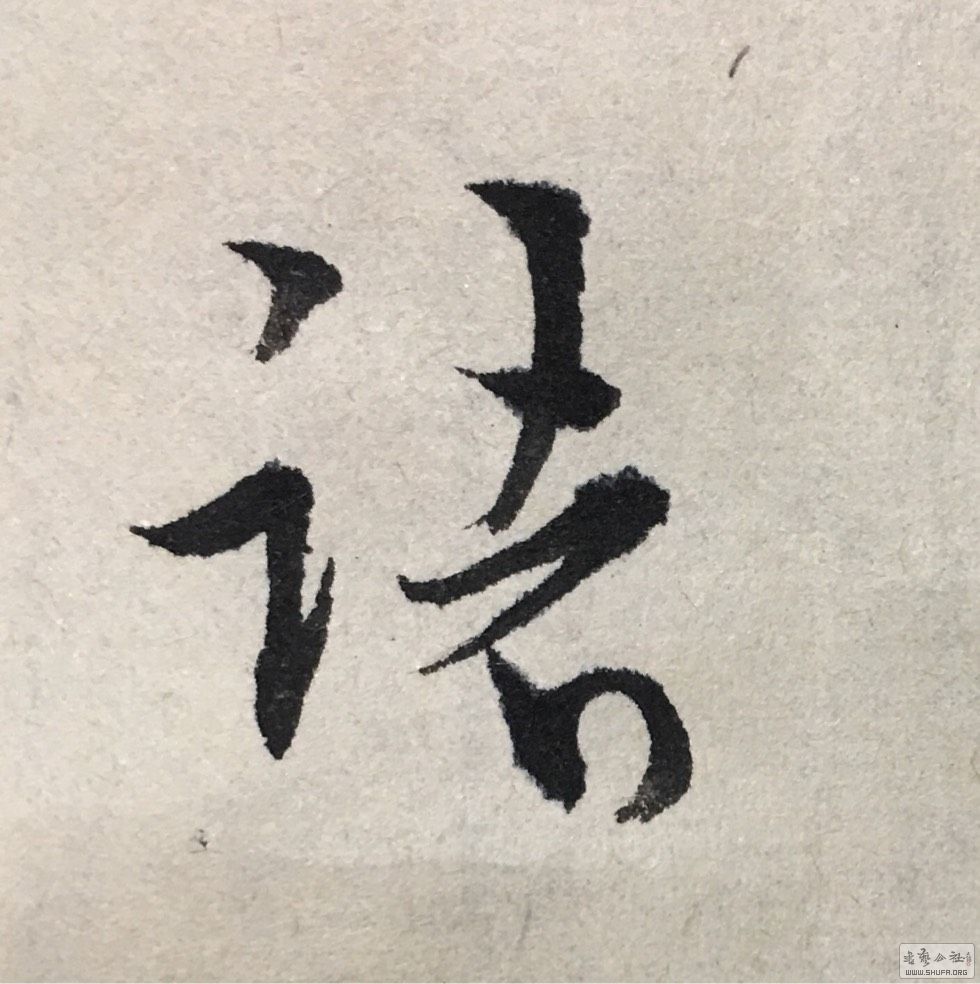 诸
書藝公社
WWW.SHUFA.ORG